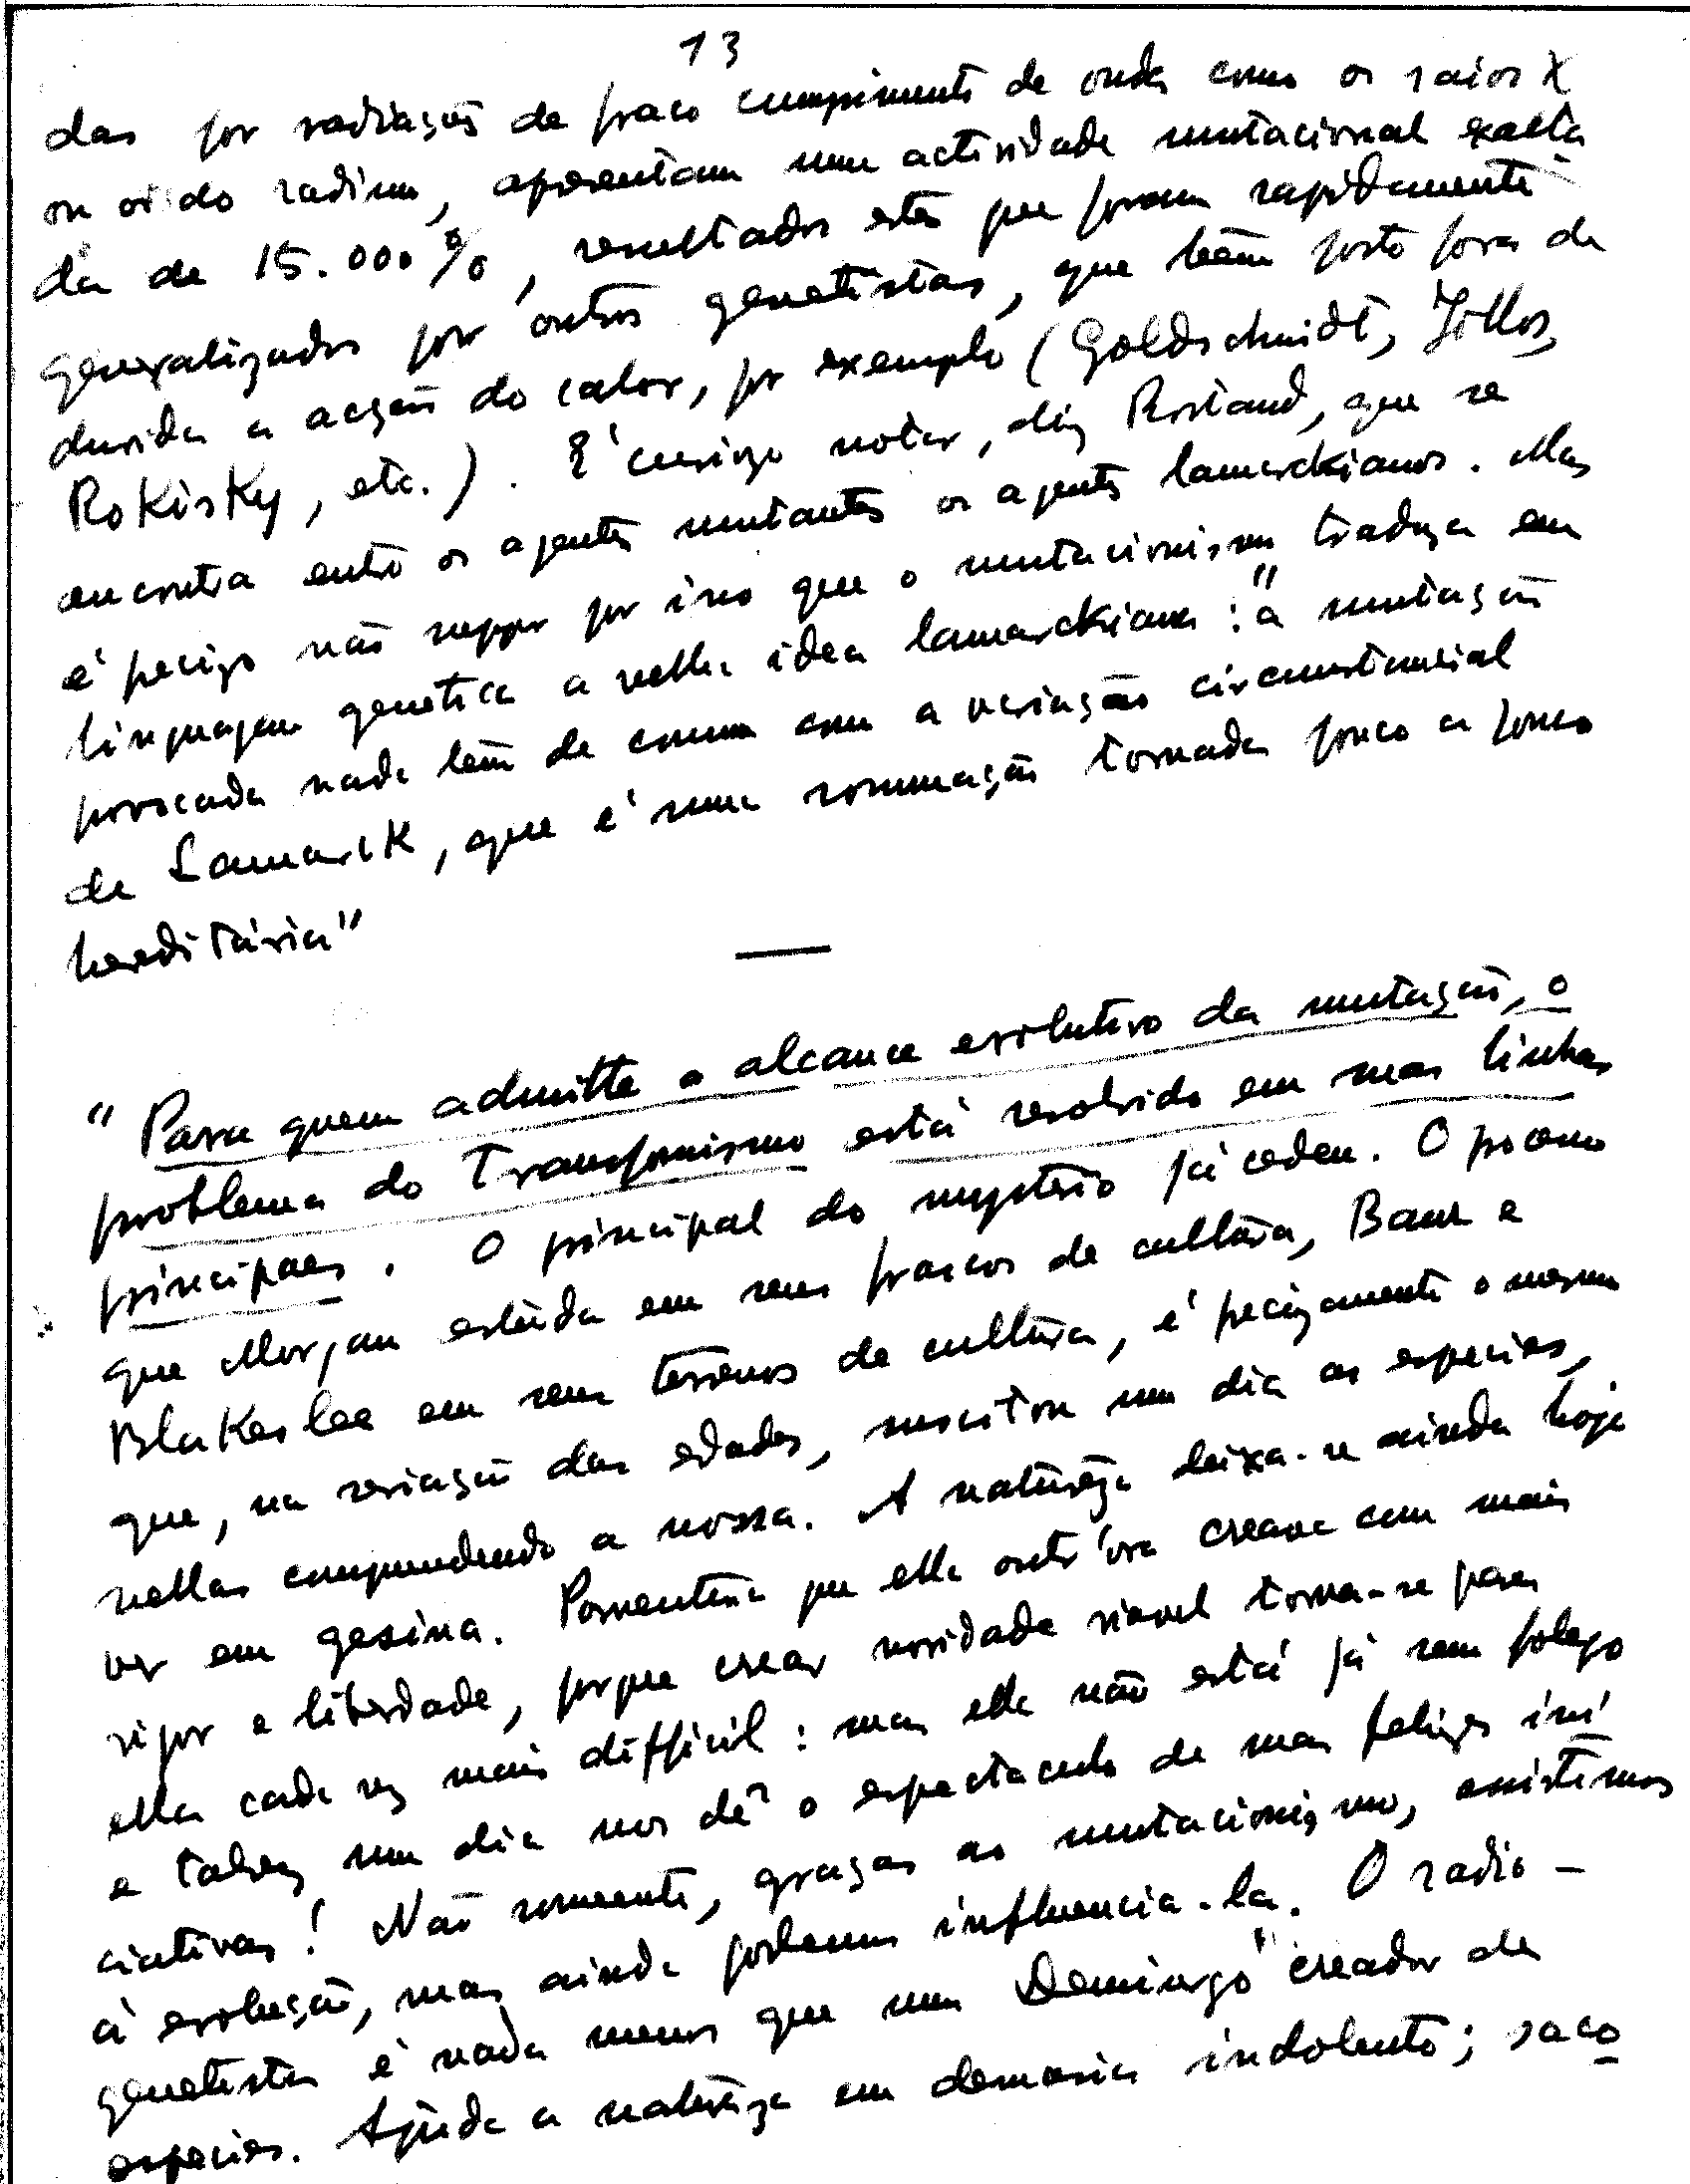 13
das por radiações de fraco cumprimento de onda como os raios X
ou os do radium, apresentam uma actividade mutacional exalta
da de 15.000%, resultados estes que foram rapidamente
generalizados por outros genetistas, que teêm posto fora de
duvida a acção do calor, por exemplo (Goldschmidt, Jollos,
Rokisky, etc.). É curioso notar, diz Rostand, que se
encontra entre os agentes mutantes os agentes lamarckianos. Mas
é preciso não suppor por isso que o mutacionismo traduza em
linguagem genetica a velha idea lamarckiana: "a mutação
provocada nada tem de comum com a variação circumstancial
de Lamarck, que é uma sommação tornada pouco a pouco
hereditária"
"Para quem admitte o alcance evolutivo da mutação, o
problema do Transformismo está resolvido em suas linhas
principaes. O principal do mysterio já cedeu. O processo
que Morgan estuda em seus frascos de cultura, Baur e
Blakeslee em seus terrenos de cultura, é precizamente o mesmo
que, na seriação das edades, suscitou um dia as especies,
nellas comprendendo a nossa. A natureza deixa-se ainda hoje
ver em gesina. Porventura que ella outr'ora creava com mais
vigor e liberdade, porque crear novidade viavel torna-se para
ella cada vez mais difficil: mas ella não está já sem folego
e talvez um dia nos dê o espectaculo de suas felizes ini
ciativas! Não somente, graças ao mutacionismo, assistimos
á evolução, mas ainda podemos influencia-la. O radio-
genetista é nada menos que um Demiurgo" creador de
especies. Ajuda a natureza em demasia indolente; saco